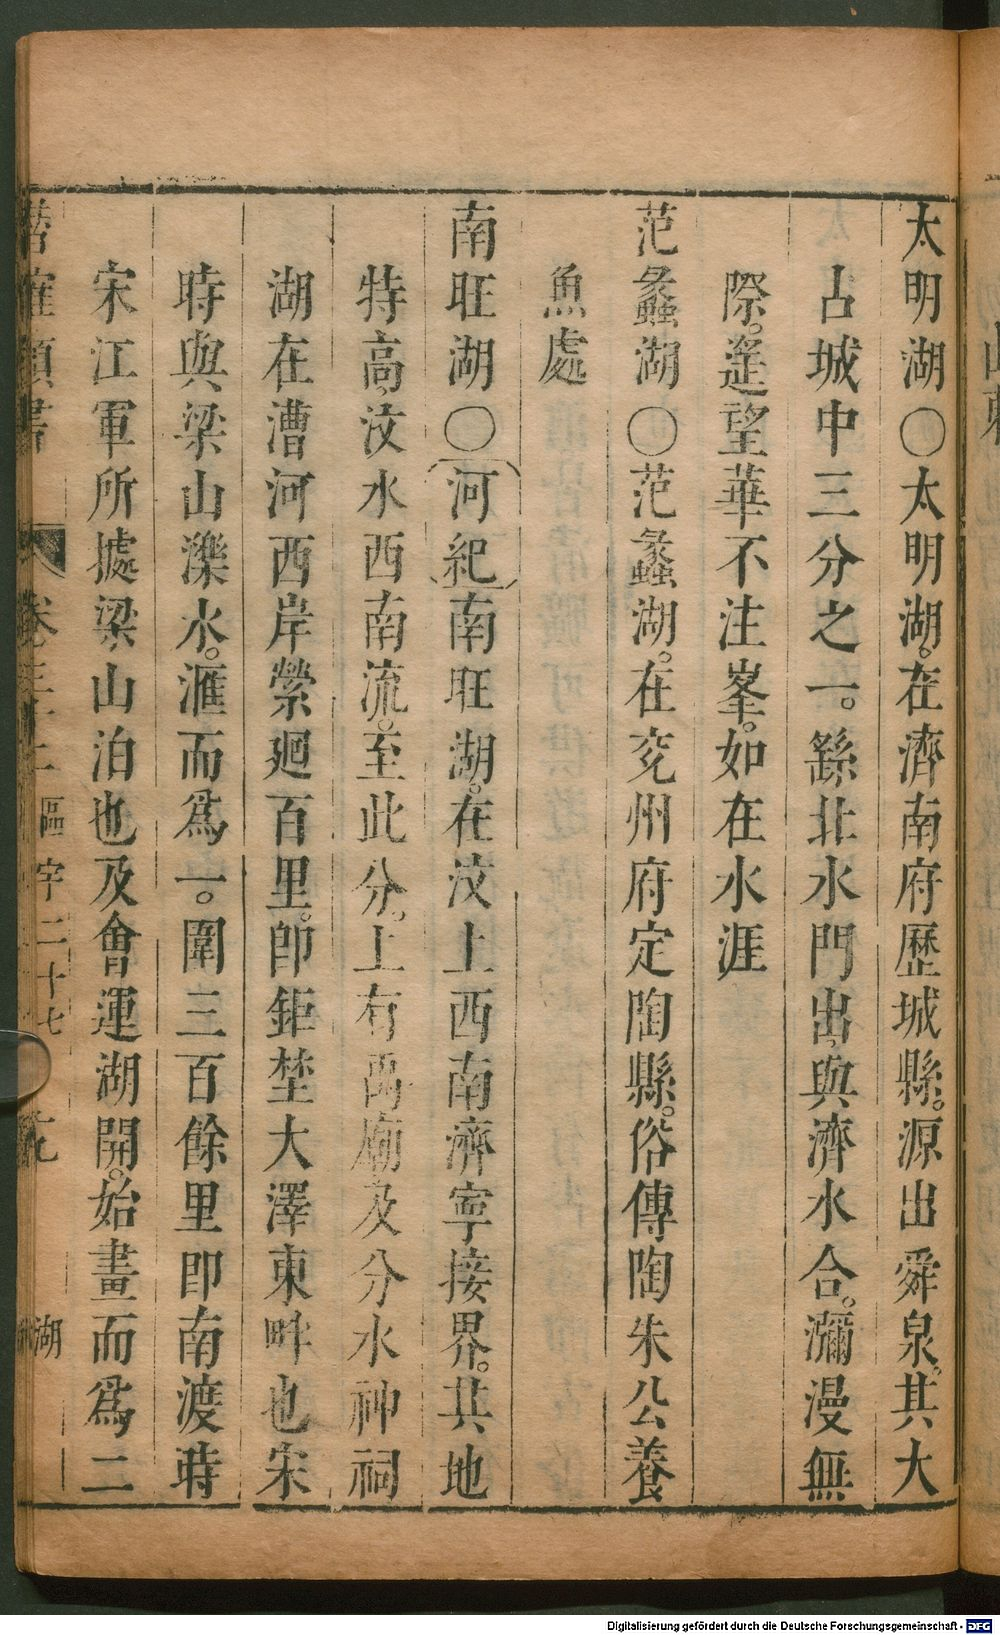 太明湖〇太明湖。在濟南府歷城縣。源出舜泉。其大
占城中三分之一。繇北水門出與濟水合。瀰漫無
際。遥望華不注峯。如在水涯
范蠡湖〇范蠡湖。在兗州府定陶縣。俗傳陶朱公養
魚處
南旺湖〇(河紀)南旺湖。在汶上西南濟寧接界。其地
特高汶水西南流。至此分。上有禹廟及分水神祠
湖在漕河西岸縈廻百里。卽鉅埜大澤東畔也宋
時與梁山濼水。滙而爲一。圍三百餘里卽南渡時
宋江軍所據梁山泊也及會運湖開。始畫而爲二
潛確類書 卷三十二 區字二十七 湖
Digitalisierung gefördert durch die Deutsche Forschungsgemeinschaft - DFG